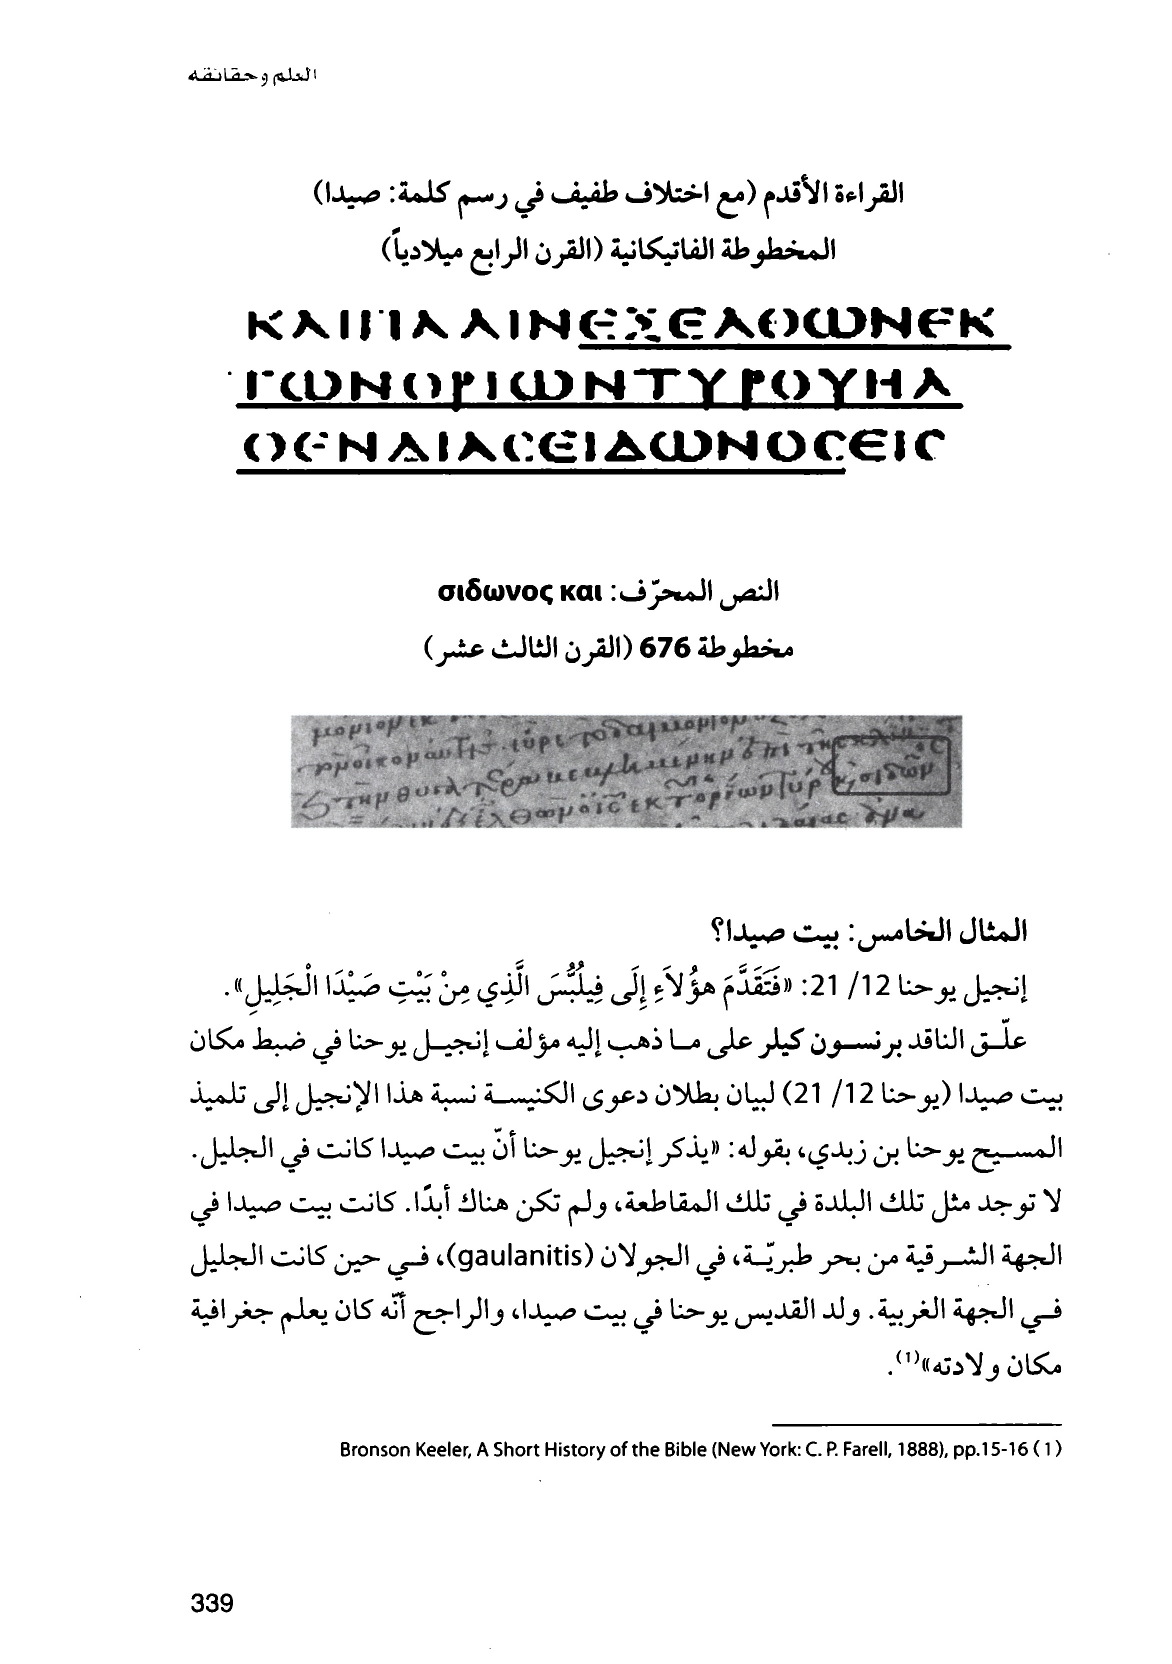 العلم وحقائقه
القراءة الأقدم (مع اختلاف طفيف في رسم كلمة: صيدا)
المخطوطة الفاتيكانية (القرن الرابع ميلادياً)
ΚΑΙΠΑΛΙΝΕΞΕΛΘΩΝΕΚ
ΤΩΝΟΡΙΩΝΤΥΡΟΥΗΛ
ΘΕΝΔΙΑCΕΙΔΩΝΟCΕΙC
النص المحرّف: σιδωνος και
مخطوطة 676 (القرن الثالث عشر)
المثال الخامس: بيت صيدا؟
إنجيل يوحنا 12/ 21: «فَتَقَدَّمَ هؤُلاَءِ إِلَى فِيلُبُّسَ الَّذِي مِنْ بَيْتِ صَيْدَا الْجَلِيلِ».
علّق الناقد برنسون كيلر على ما ذهب إليه مؤلف إنجيل يوحنا في ضبط مكان
بيت صيدا (يوحنا 12/ 21) لبيان بطلان دعوى الكنيسة نسبة هذا الإنجيل إلى تلميذ
المسيح يوحنا بن زبدي، بقوله: «يذكر إنجيل يوحنا أنّ بيت صيدا كانت في الجليل.
لا توجد مثل تلك البلدة في تلك المقاطعة، ولم تكن هناك أبدًا. كانت بيت صيدا في
الجهة الشرقية من بحر طبريّة، في الجولان (gaulanitis)، في حين كانت الجليل
في الجهة الغربية. ولد القديس يوحنا في بيت صيدا، والراجح أنّه كان يعلم جغرافية
مكان ولادته»(١).
Bronson Keeler, A Short History of the Bible (New York: C. P. Farell, 1888), pp.15-16 (1)
339